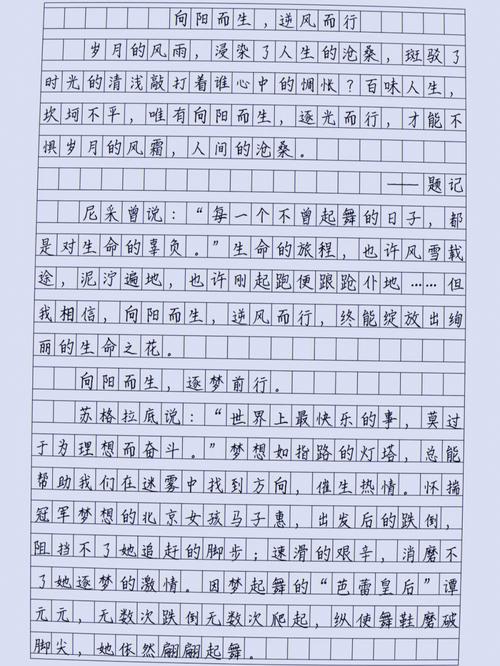 向阳而生，逆风而行
岁月的风雨，浸染了人生的沧桑，斑驳了
时光的清浅敲打着谁心中的惆怅？百味人生，
坎坷不平，唯有向阳而生，逐光而行，才能不
惧岁月的风霜，人间的沧桑。
——题记
尼采曾说：“每一个不曾起舞的日子，都
是对生命的辜负。”生命的旅程，也许风雪载
途，泥泞遍地，也许刚起跑便踉跄仆地……但
我相信，向阳而生，逆风而行，终能绽放出绚
丽的生命之花。
向阳而生，逐梦前行。
苏格拉底说：“世界上最快乐的事，莫过
于为理想而奋斗。”梦想如指路的灯塔，总能
帮助我们在迷雾中找到方向，催生热情。怀揣
冠军梦想的北京女孩马子惠，出发后的跌倒，
阻挡不了她追赶的脚步；速滑的艰辛，消磨不
了她逐梦的激情。因梦起舞的“芭蕾皇后”谭
元元，无数次跌倒无数次爬起，纵使舞鞋磨破
脚尖，她依然翩翩起舞。